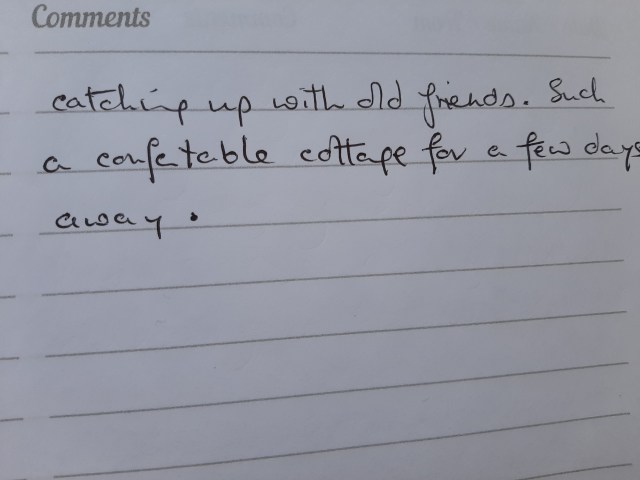 Comments
catching up with old friends. Such
a confetable cottage for a few days
away.